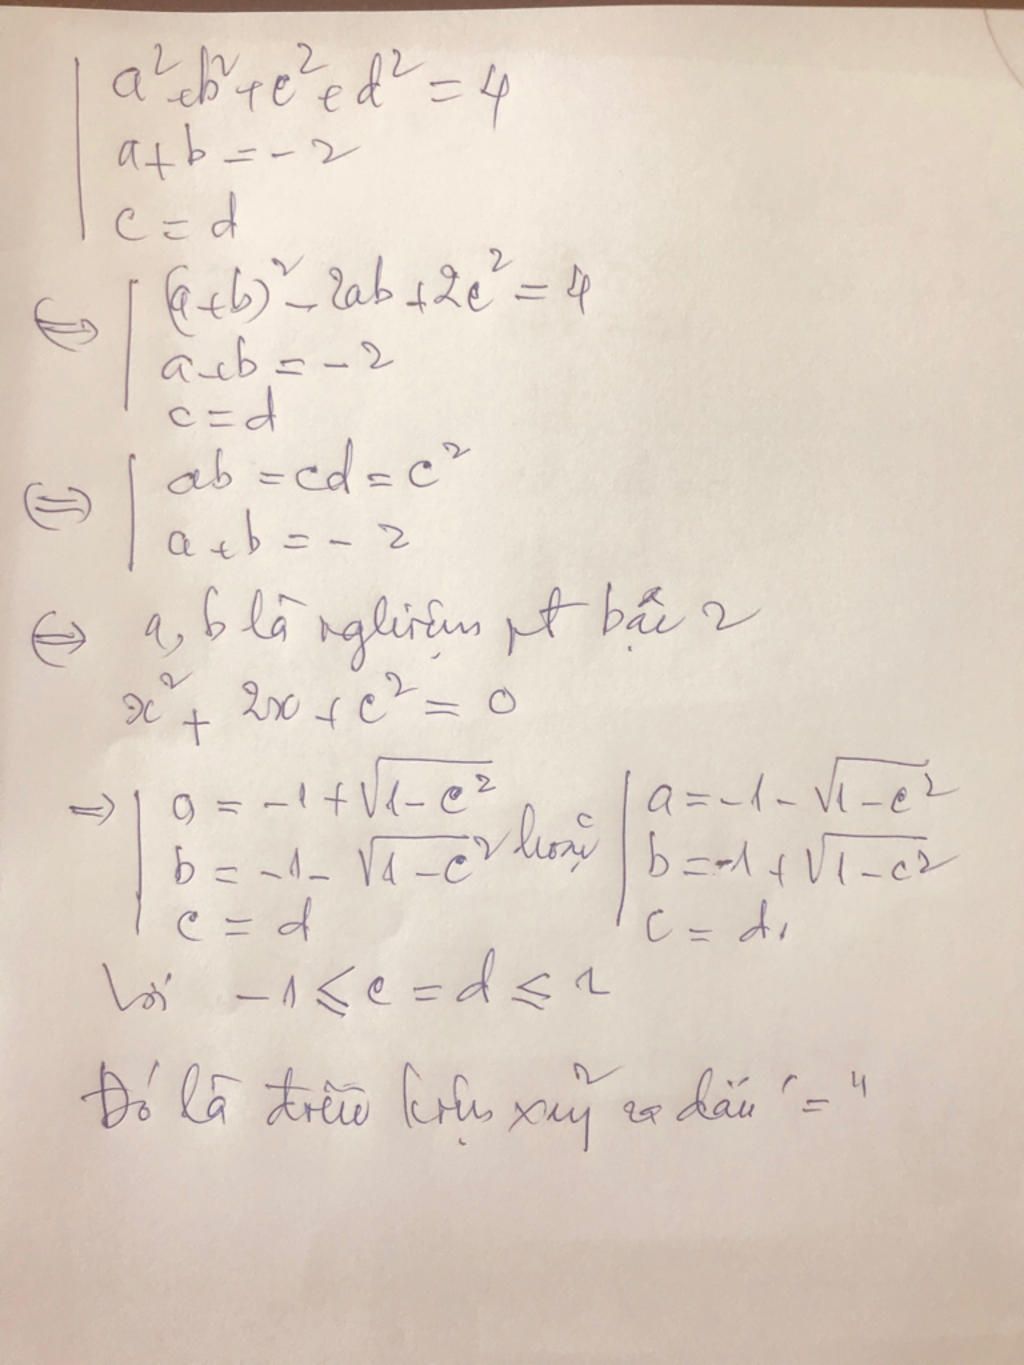 a²+b²+c²+d² = 4
a+b = -2
c = d
⇔ (a+b)² - 2ab + 2c² = 4
a+b = -2
c = d
⇔ ab = cd = c²
a+b = -2
⇔ a, b là nghiệm pt bậc 2
x² + 2x + c² = 0
⇒ a = -1+√1-c² hoặc a = -1-√1-c²
b = -1-√1-c² b = -1+√1-c²
c = d c = d.
Với -1 ≤ c = d ≤ 1
Đó là điều kiện xảy ra dấu "="